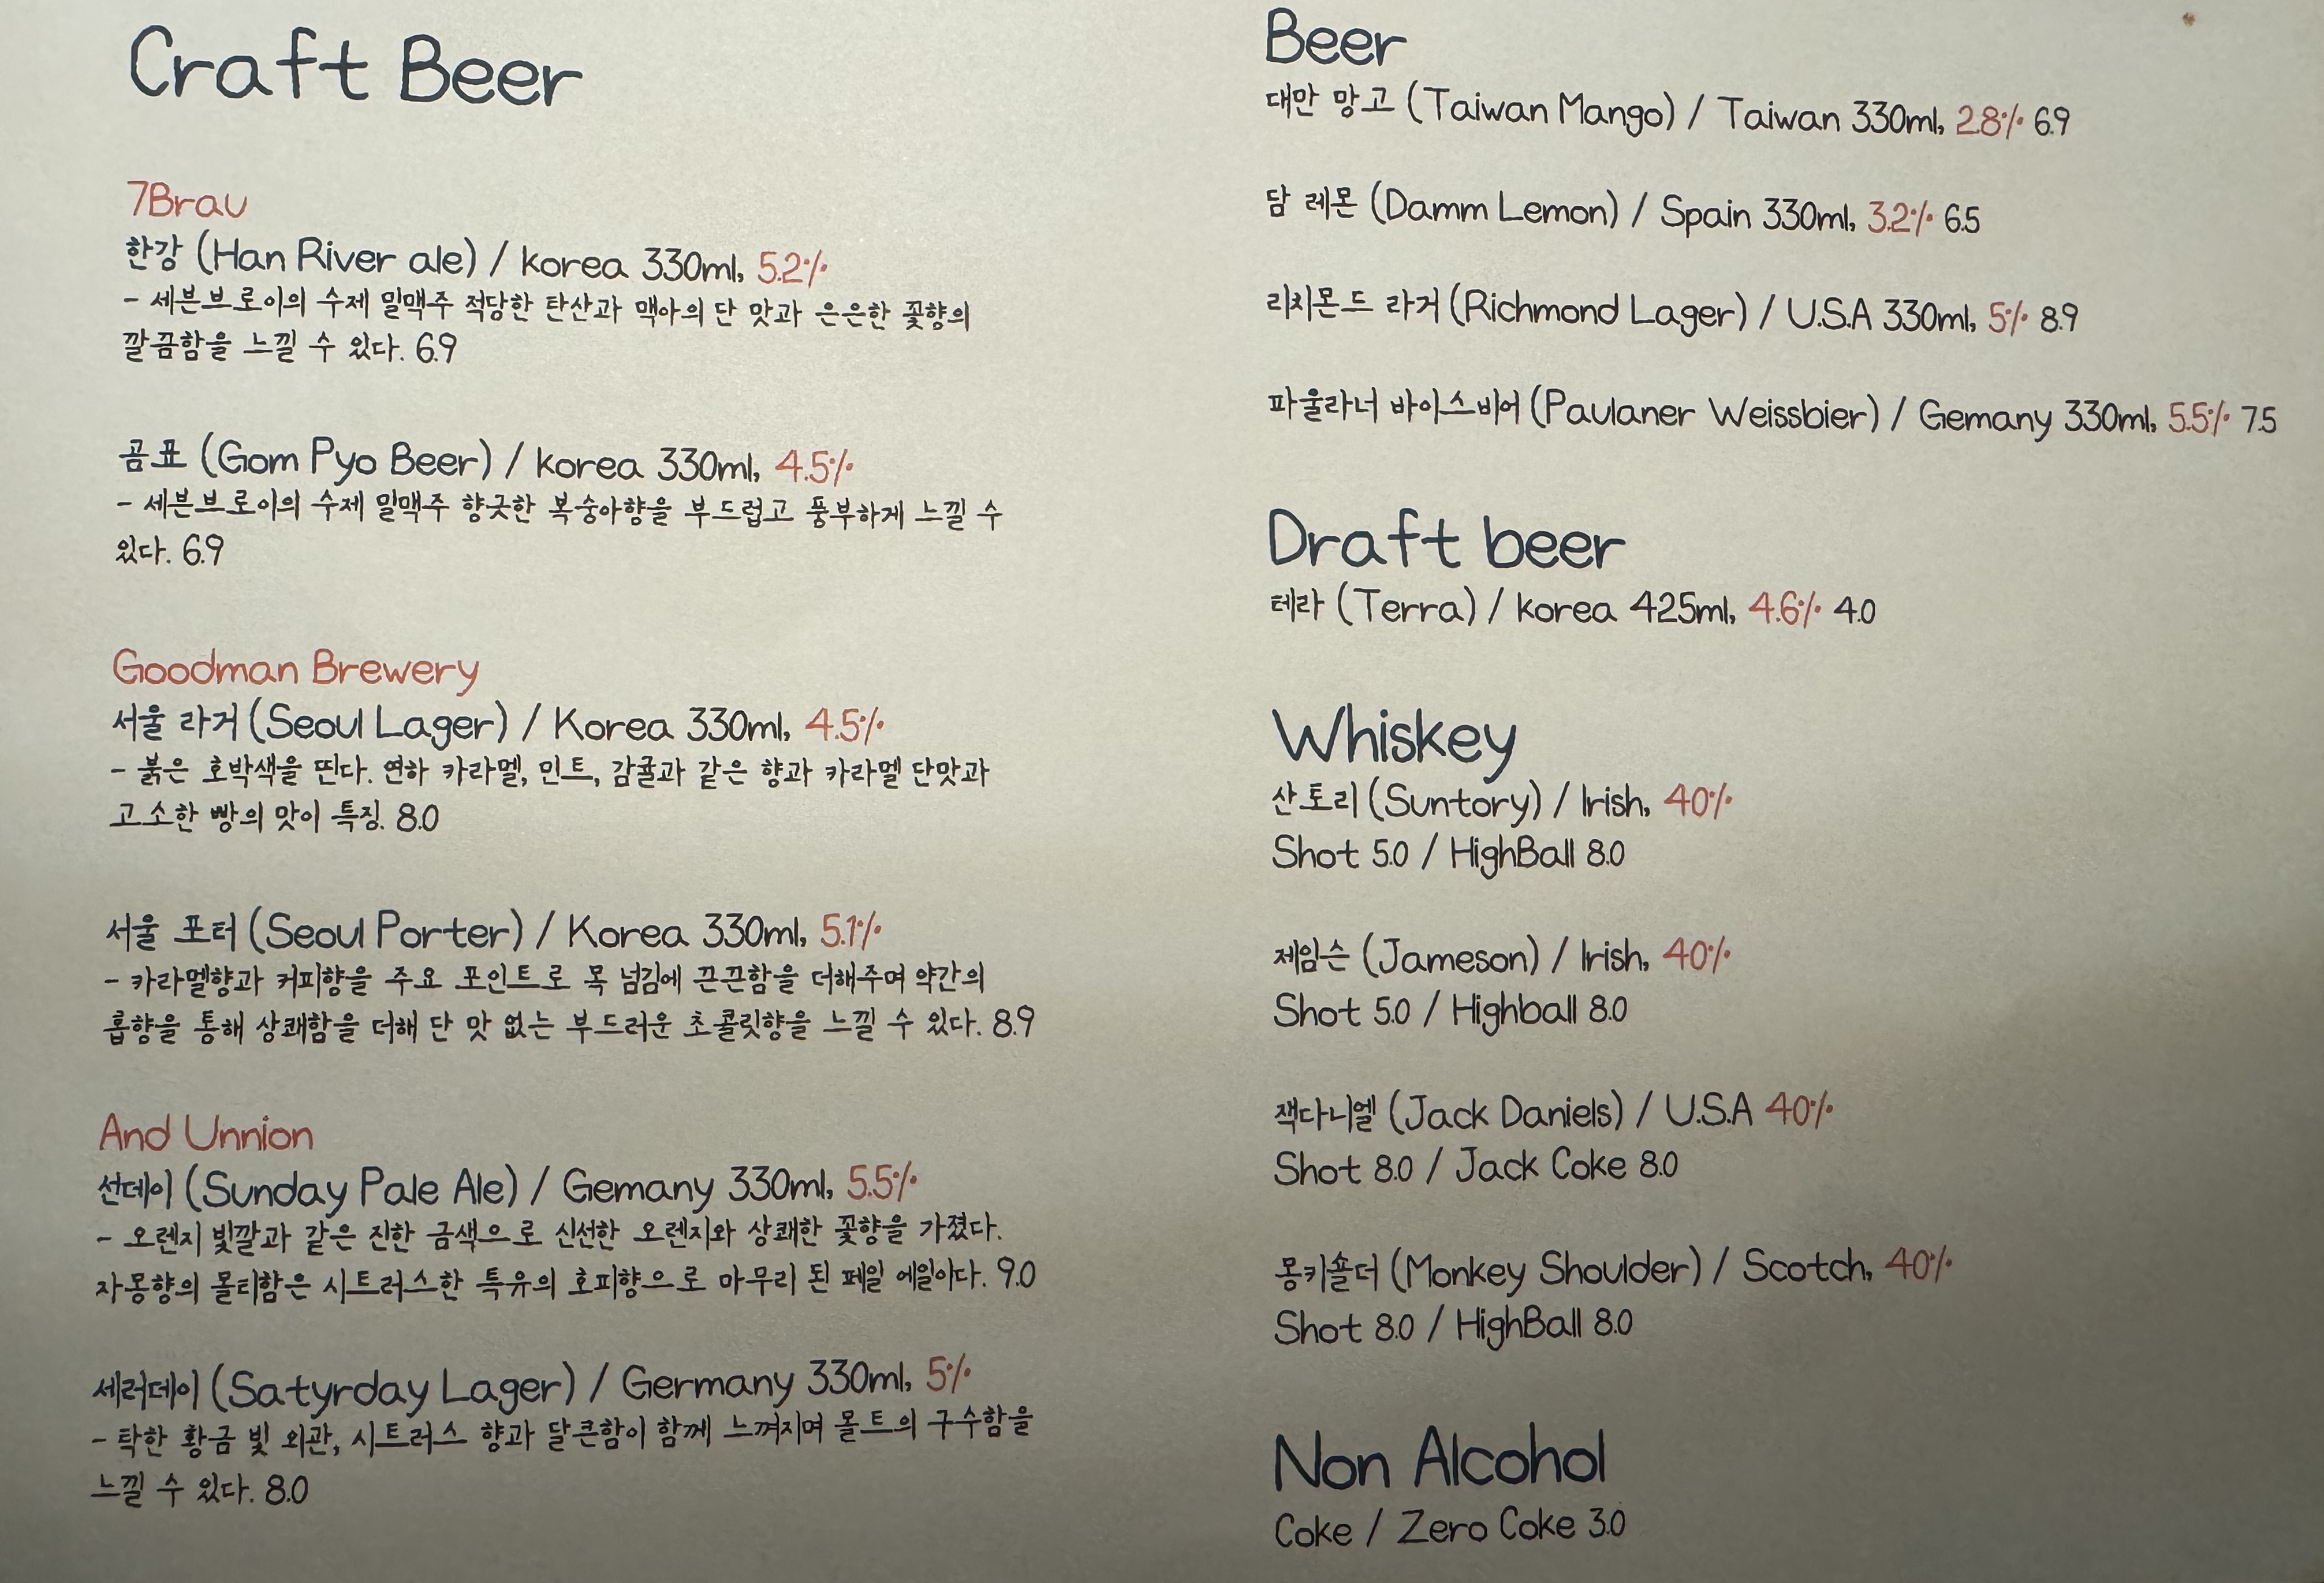 Craft Beer
7Brau
한강 (Han River ale) / korea 330ml, 5.2%
- 세븐브로이의 수제 밀맥주 적당한 탄산과 맥아의 단 맛과 은은한 꽃향의
깔끔함을 느낄 수 있다. 6.9
곰표 (Gom Pyo Beer) / korea 330ml, 4.5%
- 세븐브로이의 수제 밀맥주 향긋한 복숭아향을 부드럽고 풍부하게 느낄 수
있다. 6.9
Goodman Brewery
서울 라거 (Seoul Lager) / Korea 330ml, 4.5%
- 붉은 호박색을 띤다. 연하 카라멜, 민트, 감귤과 같은 향과 카라멜 단맛과
고소한 빵의 맛이 특징. 8.0
서울 포터 (Seoul Porter) / Korea 330ml, 5.1%
- 카라멜향과 커피향을 주요 포인트로 목 넘김에 끈끈함을 더해주며 약간의
홉향을 통해 상쾌함을 더해 단 맛 없는 부드러운 초콜릿향을 느낄 수 있다. 8.9
And Unnion
선데이 (Sunday Pale Ale) / Gemany 330ml, 5.5%
- 오렌지 빛깔과 같은 진한 금색으로 신선한 오렌지와 상쾌한 꽃향을 가졌다.
자몽향의 몰티함은 시트러스한 특유의 호피향으로 마무리 된 페일 에일이다. 9.0
세러데이 (Satyrday Lager) / Germany 330ml, 5%
- 탁한 황금 빛 외관, 시트러스 향과 달큰함이 함께 느껴지며 몰트의 구수함을
느낄 수 있다. 8.0
Beer
대만 망고 (Taiwan Mango) / Taiwan 330ml, 2.8% 6.9
담 레몬 (Damm Lemon) / Spain 330ml, 3.2% 6.5
리치몬드 라거 (Richmond Lager) / U.S.A 330ml, 5% 8.9
파울라너 바이스비어 (Paulaner Weissbier) / Gemany 330ml, 5.5% 7.5
Draft beer
테라 (Terra) / korea 425ml, 4.6% 4.0
Whiskey
산토리 (Suntory) / Irish, 40%
Shot 5.0 / HighBall 8.0
제임슨 (Jameson) / Irish, 40%
Shot 5.0 / Highball 8.0
잭다니엘 (Jack Daniels) / U.S.A 40%
Shot 8.0 / Jack Coke 8.0
몽키숄더 (Monkey Shoulder) / Scotch, 40%
Shot 8.0 / HighBall 8.0
Non Alcohol
Coke / Zero Coke 3.0